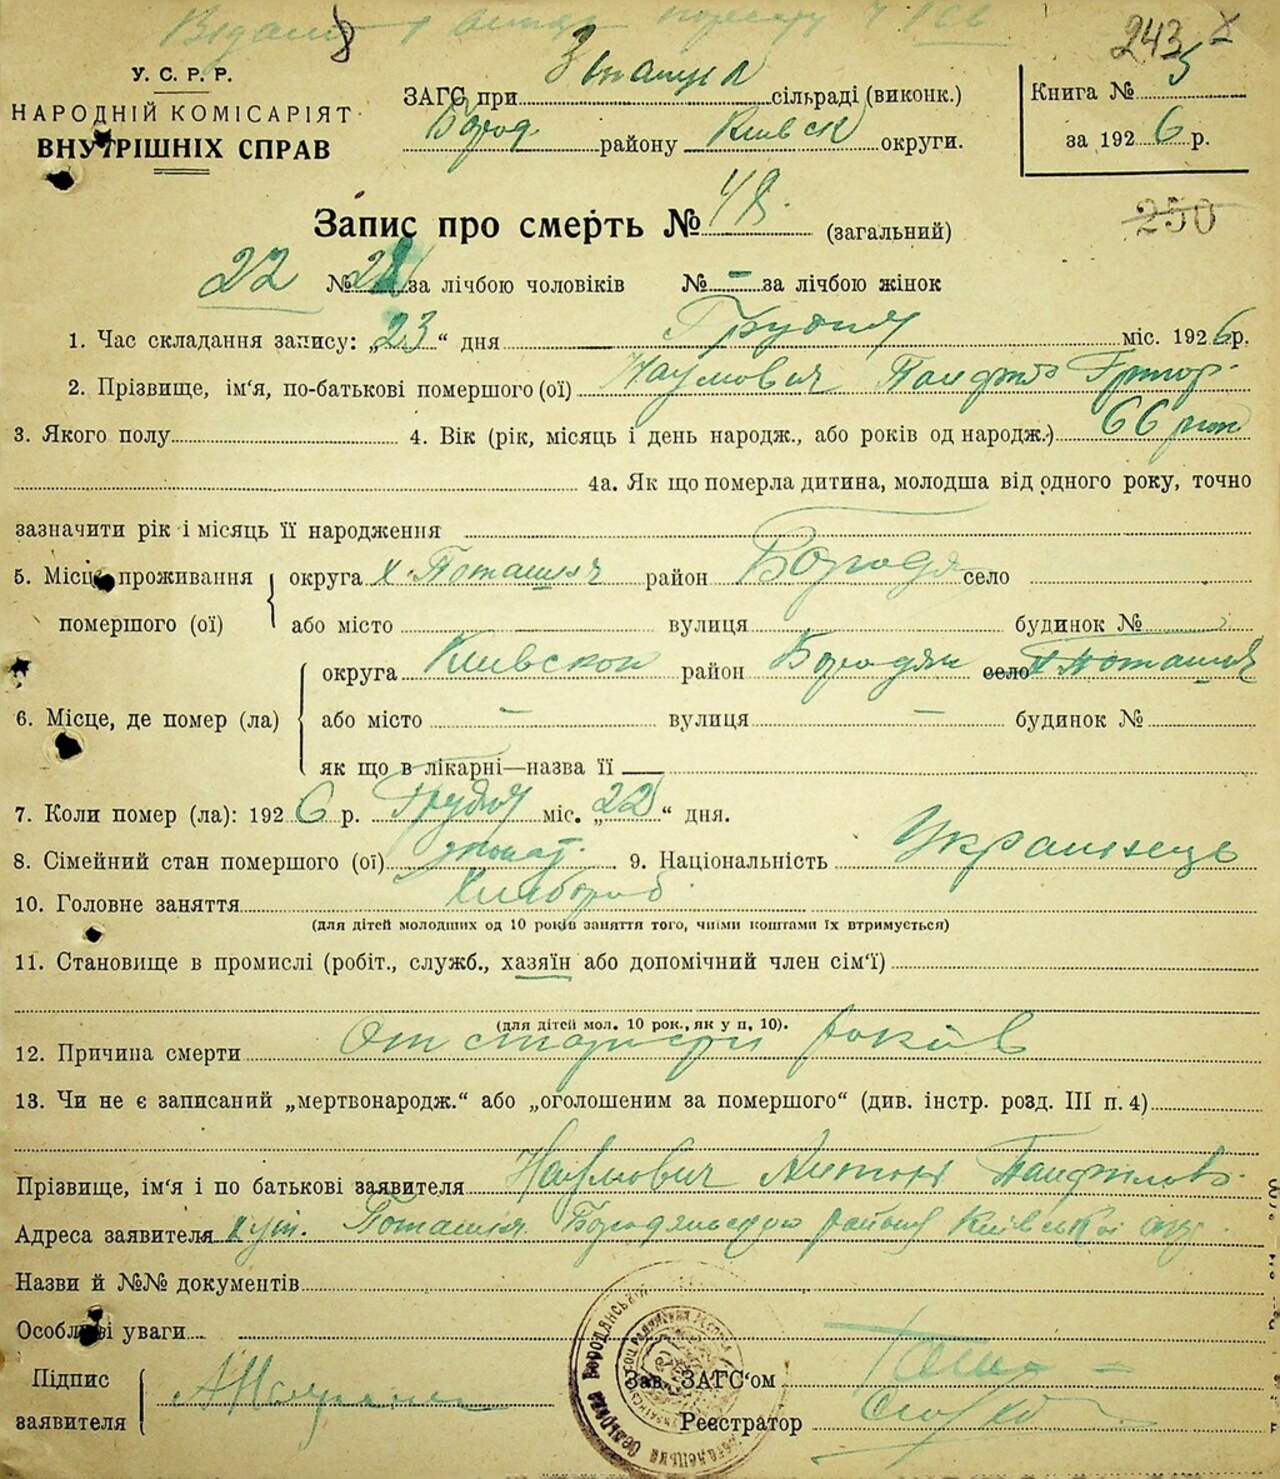 243
У. С. Р. Р.
НАРОДНІЙ КОМІСАРІЯТ
ВНУТРІШНІХ СПРАВ
ЗАГС при сільраді (виконк.)
Бород. району Київск округи.
Книга № 5
за 1926 р.
250
Запис про смерть № 48. (загальний)
22 № за лічбою чоловіків № – за лічбою жінок
1. Час складання запису: „23“ дня Грудня міс. 1926 р.
2. Прізвище, ім'я, по-батькові помершого (ої) Наумович Панфіл Григор.
3. Якого полу 4. Вік (рік, місяць і день народж., або років од народж.) 66 рок
4а. Як що померла дитина, молодша від одного року, точно
зазначити рік і місяць її народження
5. Місце проживання помершого (ої) округа х. Поташня район Бородя село
або місто вулиця будинок №
6. Місце, де помер (ла) округа Київской район Бородян село х Поташня
або місто – вулиця – будинок №
як що в лікарні—назва її
7. Коли помер (ла): 1926 р. Грудня міс. „22“ дня.
8. Сімейний стан помершого (ої) жонат. 9. Національність Украинець
10. Головне заняття Хлібороб
(для дітей молодших од 10 років заняття того, чиїми коштами їх втримується)
11. Становище в промислі (робіт., служб., хазяїн або допомічний член сім'ї)
(для дітей мол. 10 рок., як у п, 10).
12. Причина смерти От старости років
13. Чи не є записаний „мертвонародж.“ або „оголошеним за помершого“ (див. інстр. розд. III п. 4)
Прізвище, ім'я і по батькові заявителя Наумович Антон Панфілов.
Адреса заявителя хут. Поташня Бородянського району Київської окр.
Назви й №№ документів
Особливі уваги
Підпис заявителя
Зав. ЗАГС'ом
Реєстратор